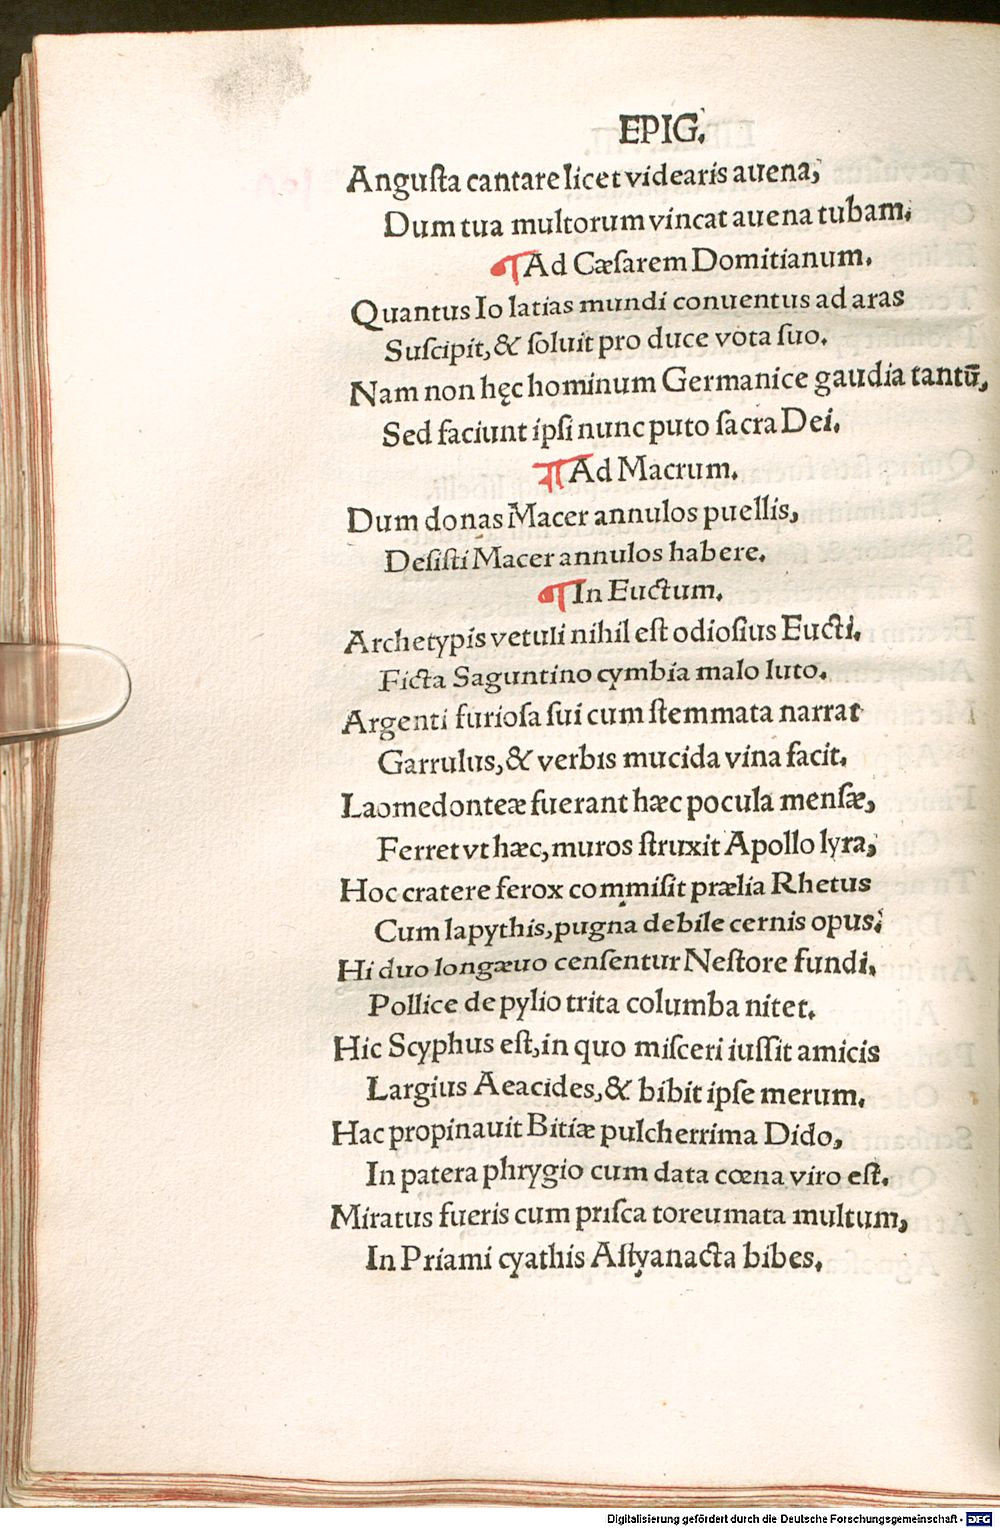 EPIG.
Anguſta cantare licet videaris auena,
Dum tua multorum vincat auena tubam.
¶Ad Cæſarem Domitianum.
Quantus Io latias mundi conuentus ad aras
Suſcipit, & ſoluit pro duce vota ſuo.
Nam non hęc hominum Germanice gaudia tantū,
Sed faciunt ipſi nunc puto ſacra Dei.
¶Ad Macrum.
Dum donas Macer annulos puellis,
Deſiſti Macer annulos habere.
¶In Euctum.
Archetypis vetuli nihil eſt odioſius Eucti.
Ficta Saguntino cymbia malo luto.
Argenti furioſa ſui cum ſtemmata narrat
Garrulus, & verbis mucida vina facit.
Laomedonteæ fuerant hæc pocula menſæ,
Ferret vt hæc, muros ſtruxit Apollo lyra,
Hoc cratere ferox commiſit prælia Rhetus
Cum lapythis, pugna debile cernis opus.
Hi duo longæuo cenſentur Neſtore fundi.
Pollice de pylio trita columba nitet.
Hic Scyphus eſt, in quo miſceri iuſſit amicis
Largius Aeacides, & bibit ipſe merum.
Hac propinauit Bitiæ pulcherrima Dido,
In patera phrygio cum data cœna viro eſt.
Miratus fueris cum priſca toreumata multum,
In Priami cyathis Aſtyanacta bibes.
Digitalisierung gefördert durch die Deutsche Forschungsgemeinschaft - DFG